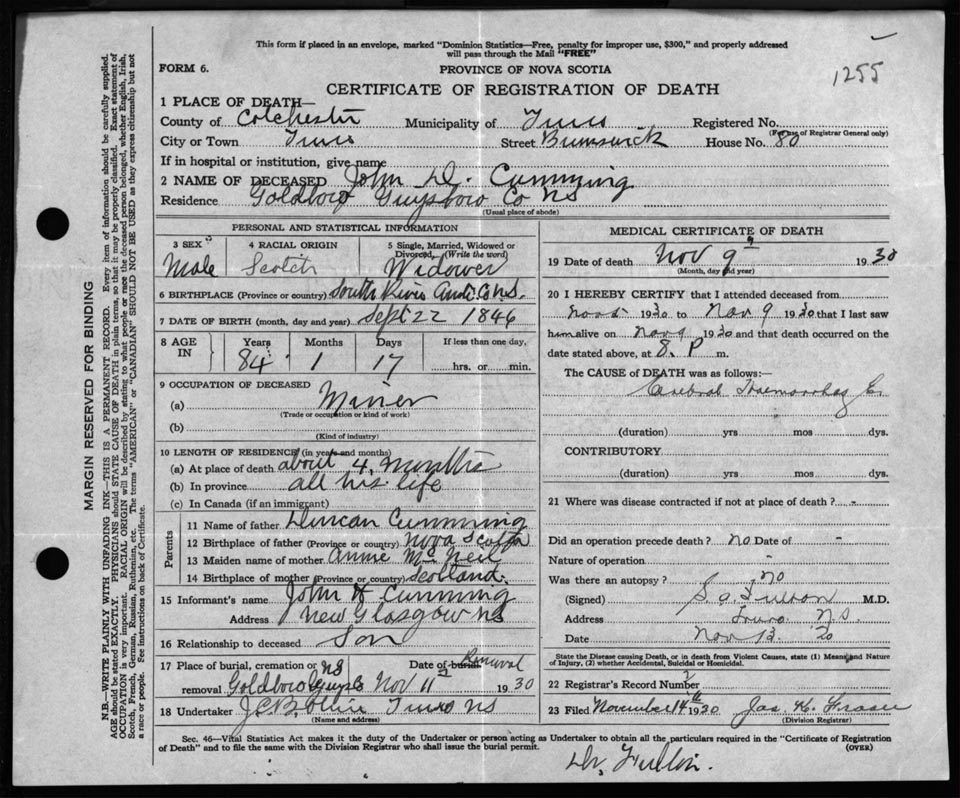 This form if placed in an envelope, marked "Dominion Statistics—Free, penalty for improper use, $300," and properly addressed
will pass through the Mail "FREE"
1255
FORM 6.
PROVINCE OF NOVA SCOTIA
CERTIFICATE OF REGISTRATION OF DEATH
1 PLACE OF DEATH—
County of Colchester Municipality of Truro Registered No.
(For use of Registrar General only)
City or Town Truro Street Brunswick House No. 80
If in hospital or institution, give name
2 NAME OF DECEASED John D. Cumming
Residence Goldboro Guysboro Co NS
(Usual place of abode)
PERSONAL AND STATISTICAL INFORMATION
3 SEX Male
4 RACIAL ORIGIN Scotch
5 Single, Married, Widowed or Divorced, (Write the word) Widower
6 BIRTHPLACE (Province or country) South River Anti. Co N.S.
7 DATE OF BIRTH (month, day and year) Sept 22 1846
8 AGE IN
Years Months Days If less than one day,
84 1 17 hrs. or min.
9 OCCUPATION OF DECEASED
(a) Miner
(Trade or occupation or kind of work)
(b)
(Kind of industry)
10 LENGTH OF RESIDENCE (in years and months)
(a) At place of death about 4 months
(b) In province all his life
(c) In Canada (if an immigrant)
Parents
11 Name of father Duncan Cumming
12 Birthplace of father (Province or country) Nova Scotia
13 Maiden name of mother Annie McNeil
14 Birthplace of mother (Province or country) Scotland.
15 Informant's name John H Cumming
Address New Glasgow NS
16 Relationship to deceased Son
17 Place of burial, cremation or removal Goldboro Guys Co NS
Date of burial Removal Nov 11 1930
18 Undertaker Truro NS
(Name and address)
MEDICAL CERTIFICATE OF DEATH
19 Date of death Nov 9th 1930
(Month, day and year)
20 I HEREBY CERTIFY that I attended deceased from
1930 to Nov 9 1930 that I last saw
him alive on Nov 9 1930 and that death occurred on the
date stated above, at 8. P m.
The CAUSE of DEATH was as follows:—
Cerebral Haemorrhage
(duration) yrs mos dys.
CONTRIBUTORY
(duration) yrs mos dys.
21 Where was disease contracted if not at place of death? -
Did an operation precede death? no Date of -
Nature of operation "
Was there an autopsy? no
(Signed) M.D.
Address Truro N.S.
Date Nov 13
State the Disease causing Death, or in death from Violent Causes, state (1) Means and Nature
of Injury, (2) whether Accidental, Suicidal or Homicidal.
22 Registrar's Record Number
23 Filed November 14th 1930 Jas. H. Fraser
(Division Registrar)
Sec. 46—Vital Statistics Act makes it the duty of the Undertaker or person acting as Undertaker to obtain all the particulars required in the "Certificate of Registration
of Death" and to file the same with the Division Registrar who shall issue the burial permit. (OVER)
MARGIN RESERVED FOR BINDING
N.B.—WRITE PLAINLY WITH UNFADING INK—THIS IS A PERMANENT RECORD. Every item of information should be carefully supplied.
AGE should be stated EXACTLY. PHYSICIANS should STATE CAUSE OF DEATH in plain terms, so that it may be properly classified. Exact statement of
OCCUPATION is very important. RACIAL ORIGIN will be described by stating to what people or race the deceased person belonged, whether English, Irish,
Scotch, French, German, Russian, Ruthenian, etc. The terms "AMERICAN" or "CANADIAN" SHOULD NOT BE USED as they express citizenship but not
a race or people. See instructions on back of Certificate.